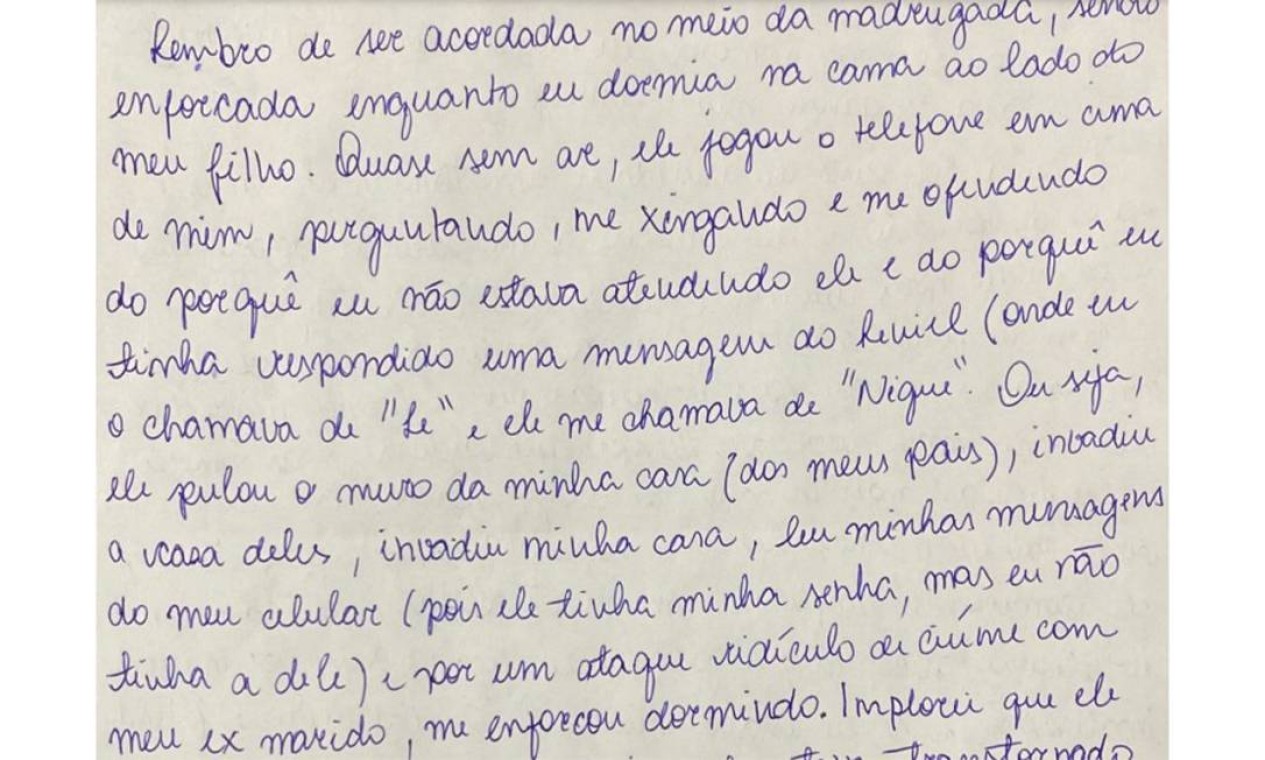 Lembro de ser acordada no meio da madrugada, sendo
enforcada enquanto eu dormia na cama ao lado do
meu filho. Quase sem ar, ele jogou o telefone em cima
de mim, perguntando, me xingando e me ofendendo
do porquê eu não estava atendendo ele e do porquê eu
tinha respondido uma mensagem do (onde eu
o chamava de "Le" e ele me chamava de "Nigue". Ou seja,
ele pulou o muro da minha casa (dos meus pais), invadiu
a casa deles, invadiu minha casa, leu minhas mensagens
do meu celular (pois ele tinha minha senha, mas eu não
tinha a dele) e por um ataque ridículo de ciúme com
meu ex marido, me enforcou dormindo. Implorei que ele
transtornado